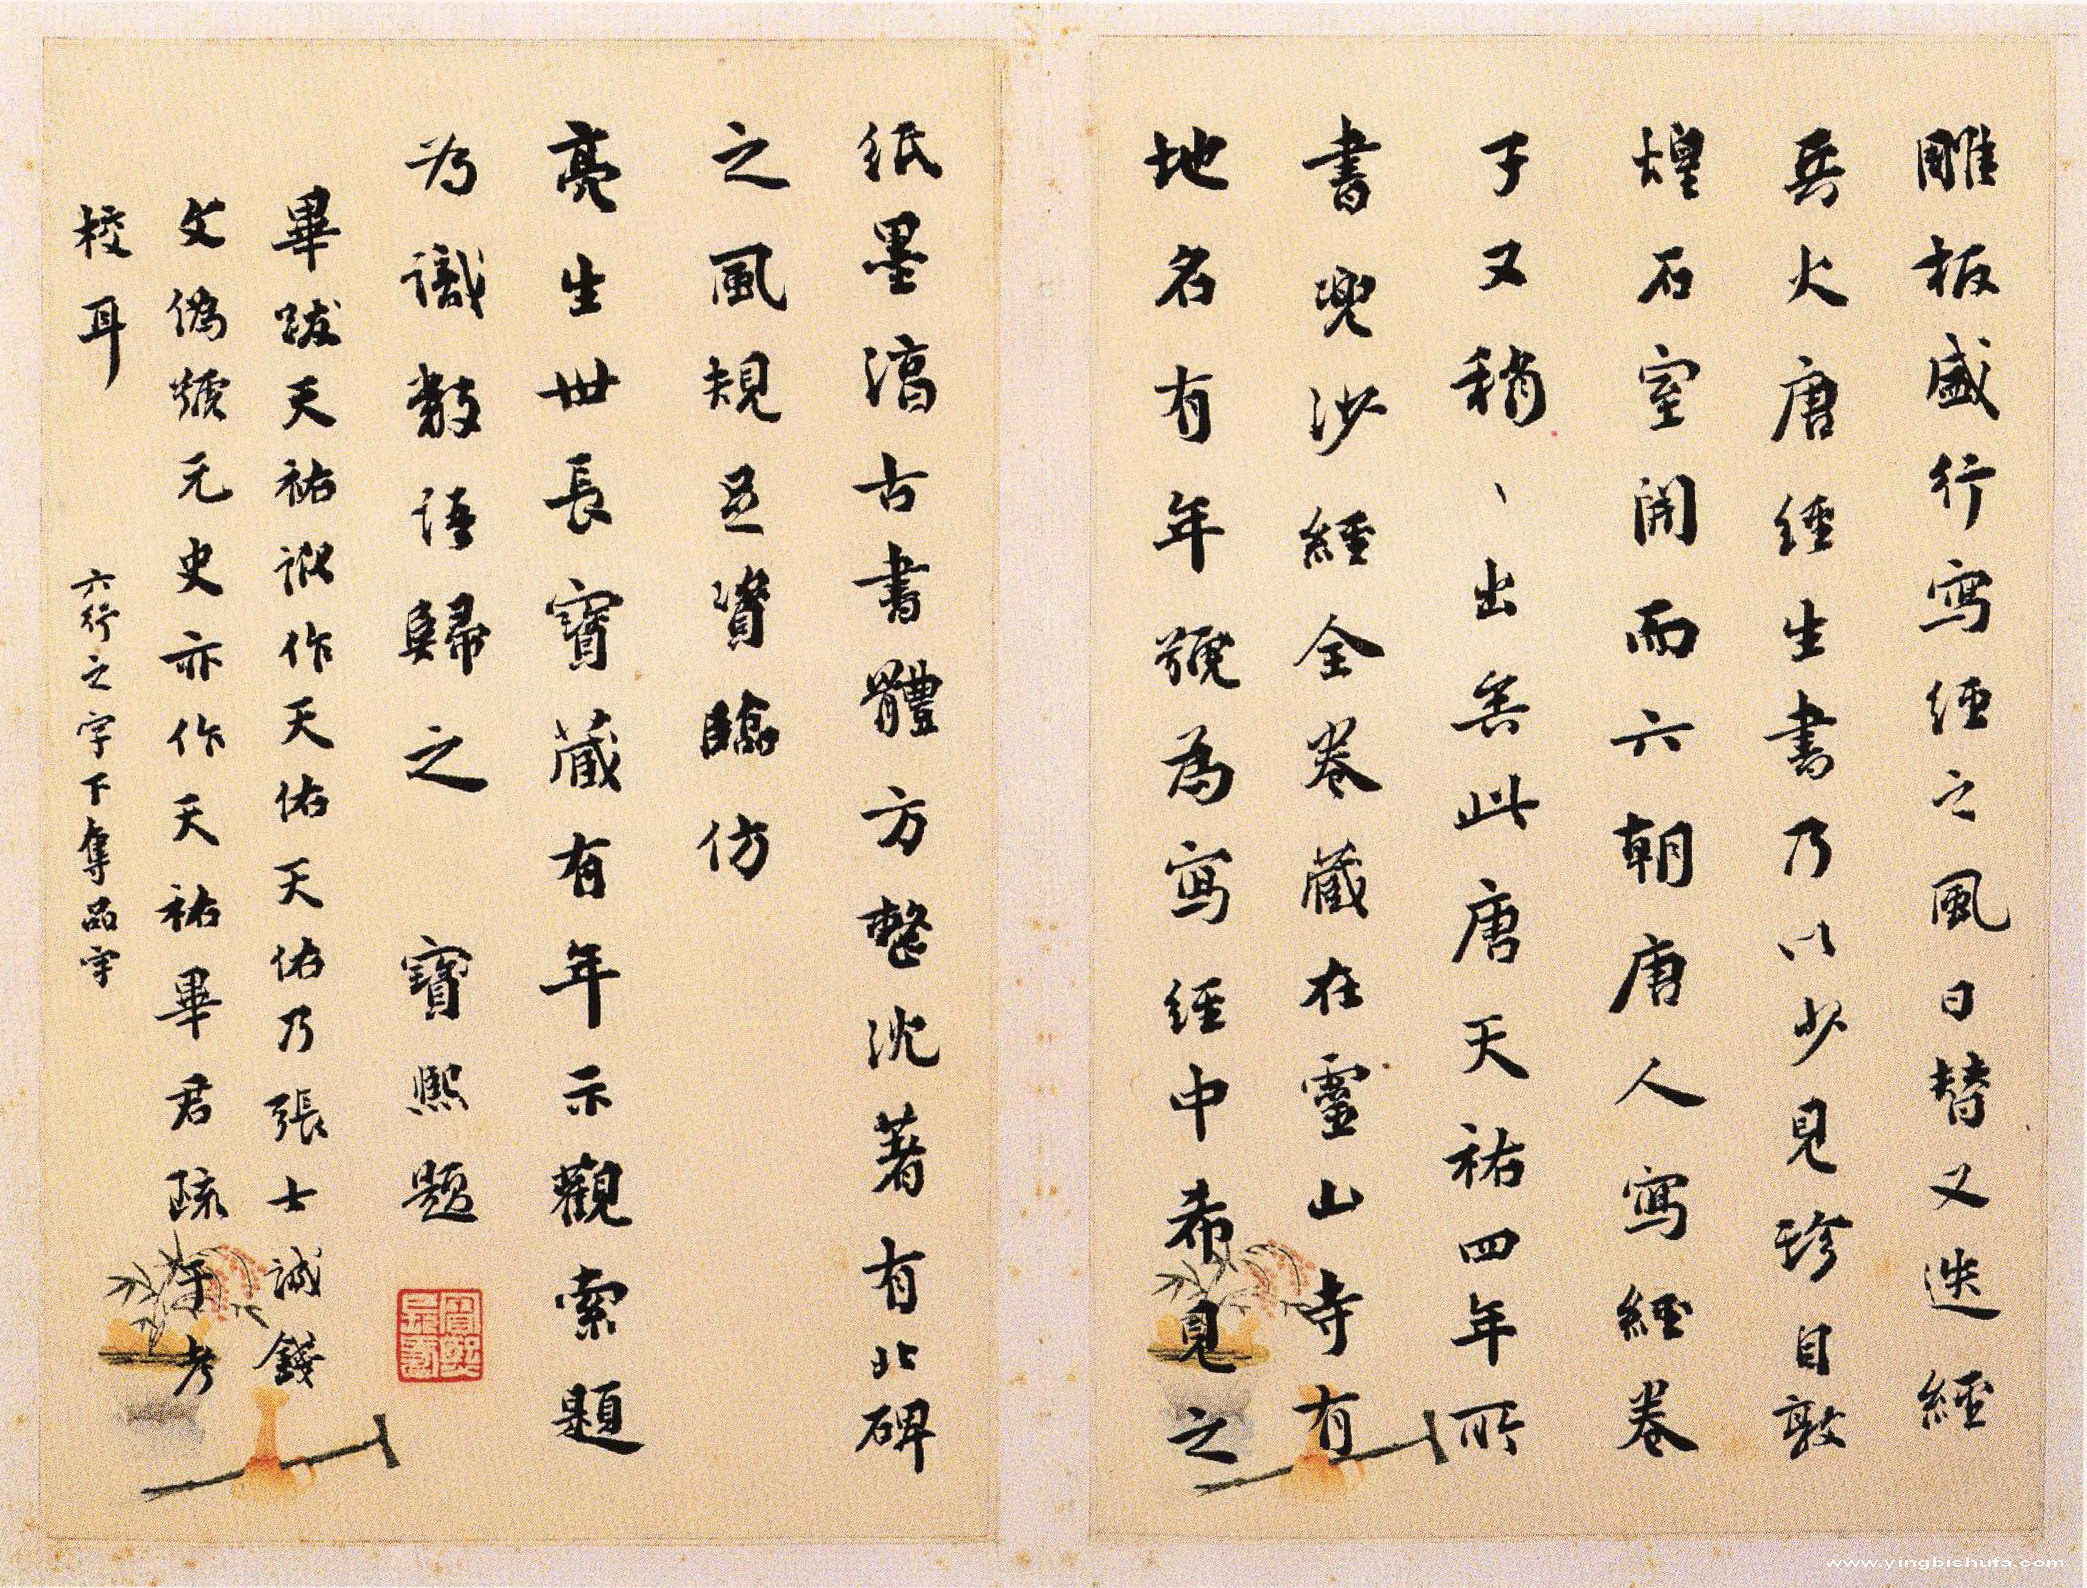 雕板盛行寫經之風日替又迭經
兵火唐經生書乃以少見珍自敦
煌石室開而六朝唐人寫經卷
子又稍、出矣此唐天祐四年所
書兜沙經全卷藏在靈山寺有
地名有年號為寫經中希見之
紙墨淳古書體方整沈著有北碑
之風規足資臨仿
亮生世長寶藏有年示觀索題
为識數語歸之 寶熙題
畢跋天祐誤作天佑天佑乃張士誠錢
文偽號元史亦作天祐畢君疏于考
校耳 六行之字下奪品字
www.yingbishufa.com